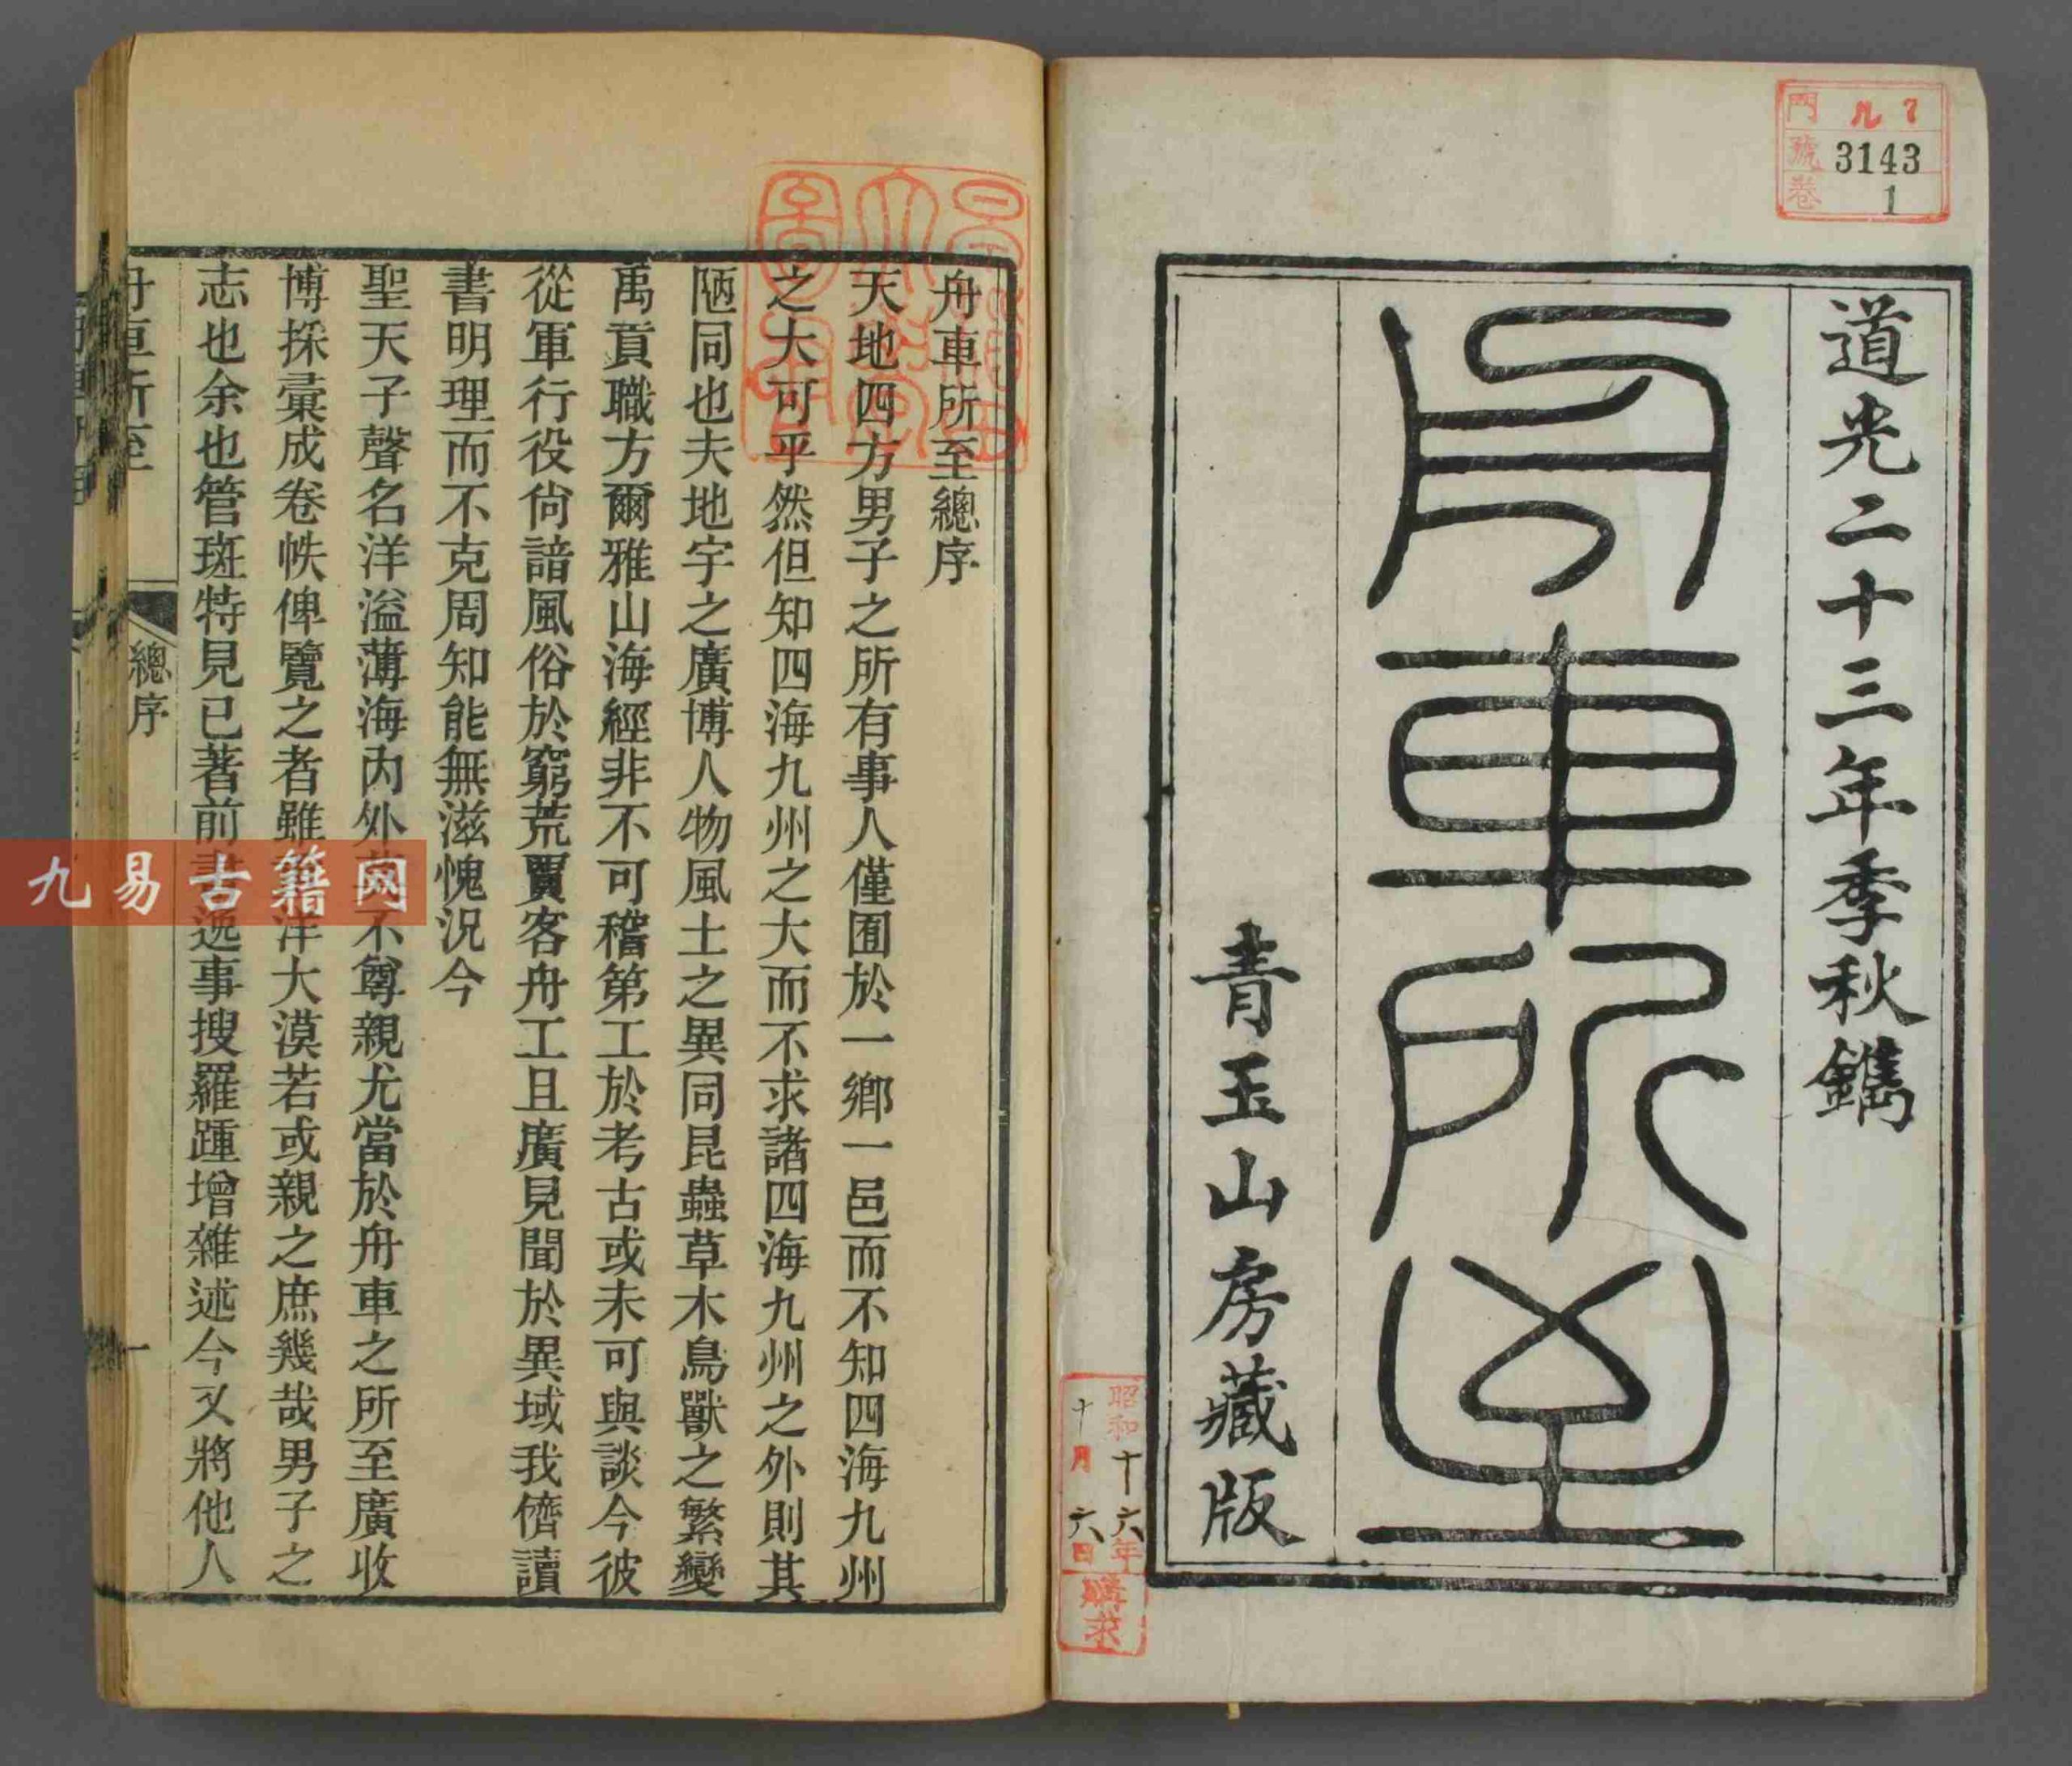 道光二十三年季秋鐫
舟車所至
青玉山房藏版
門 ル7
號 3143
卷 1
昭和十六年
十月六日
購求
舟車所至總序
天地四方男子之所有事人僅囿於一鄉一邑而不知四海九州
之大可乎然但知四海九州之大而不求諸四海九州之外則其
陋同也夫地宇之廣博人物風土之異同昆蟲草木鳥獸之繁變
禹貢職方爾雅山海經非不可稽第工於考古或未可與談今彼
從軍行役尙諳風俗於窮荒賈客舟工且廣見聞於異域我儕讀
書明理而不克周知能無滋愧況今
聖天子聲名洋溢薄海內外 不尊親尤當於舟車之所至廣收
博採彙成卷帙俾覽之者雖 洋大漠若或親之庶幾哉男子之
志也余也管斑特見已著前書逸事搜羅踵增雜述今又將他人
舟車所至
總序
一
九易古籍网